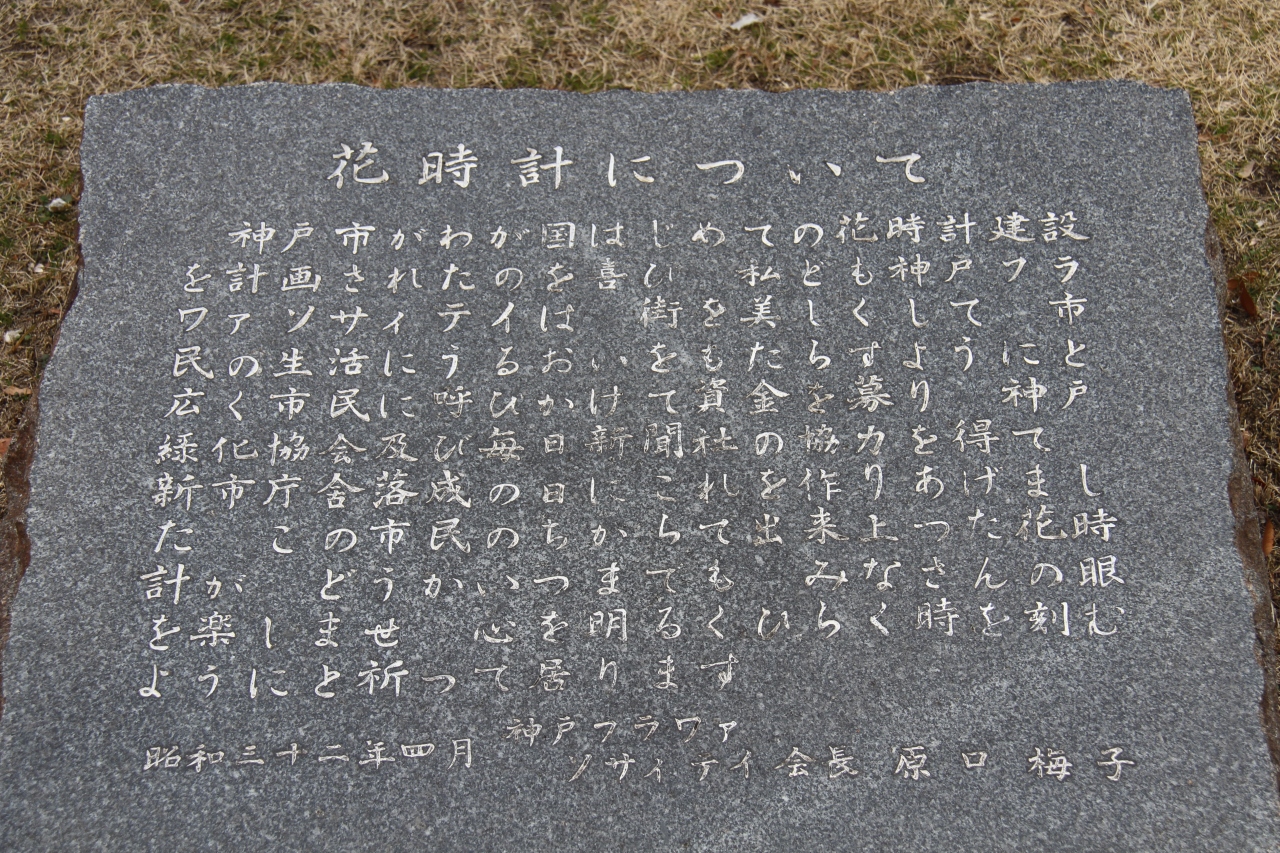 花時計について
神戸市がわが国はじめての花時計建設
を計画されたのを喜ひ 私とも神戸フラ
ワァソサィテイは 街を美しくして 市
民の生活にうるおいをもたらすようにと
広く市民に呼ひかけ て資金を募り 神戸
緑化協会及ひ毎日新聞社の協力を得て
新市庁舎落成の日に これを作りあげまし
た この市民のちからて出来上つた花時
計が どうか いつまてもみなさんの眼
を楽しませ 心を明るく ひらく時を刻む
ようにと祈つて居ります
昭和三十二年四月 神戸フラワァ
ソサィテイ会長 原口 梅子